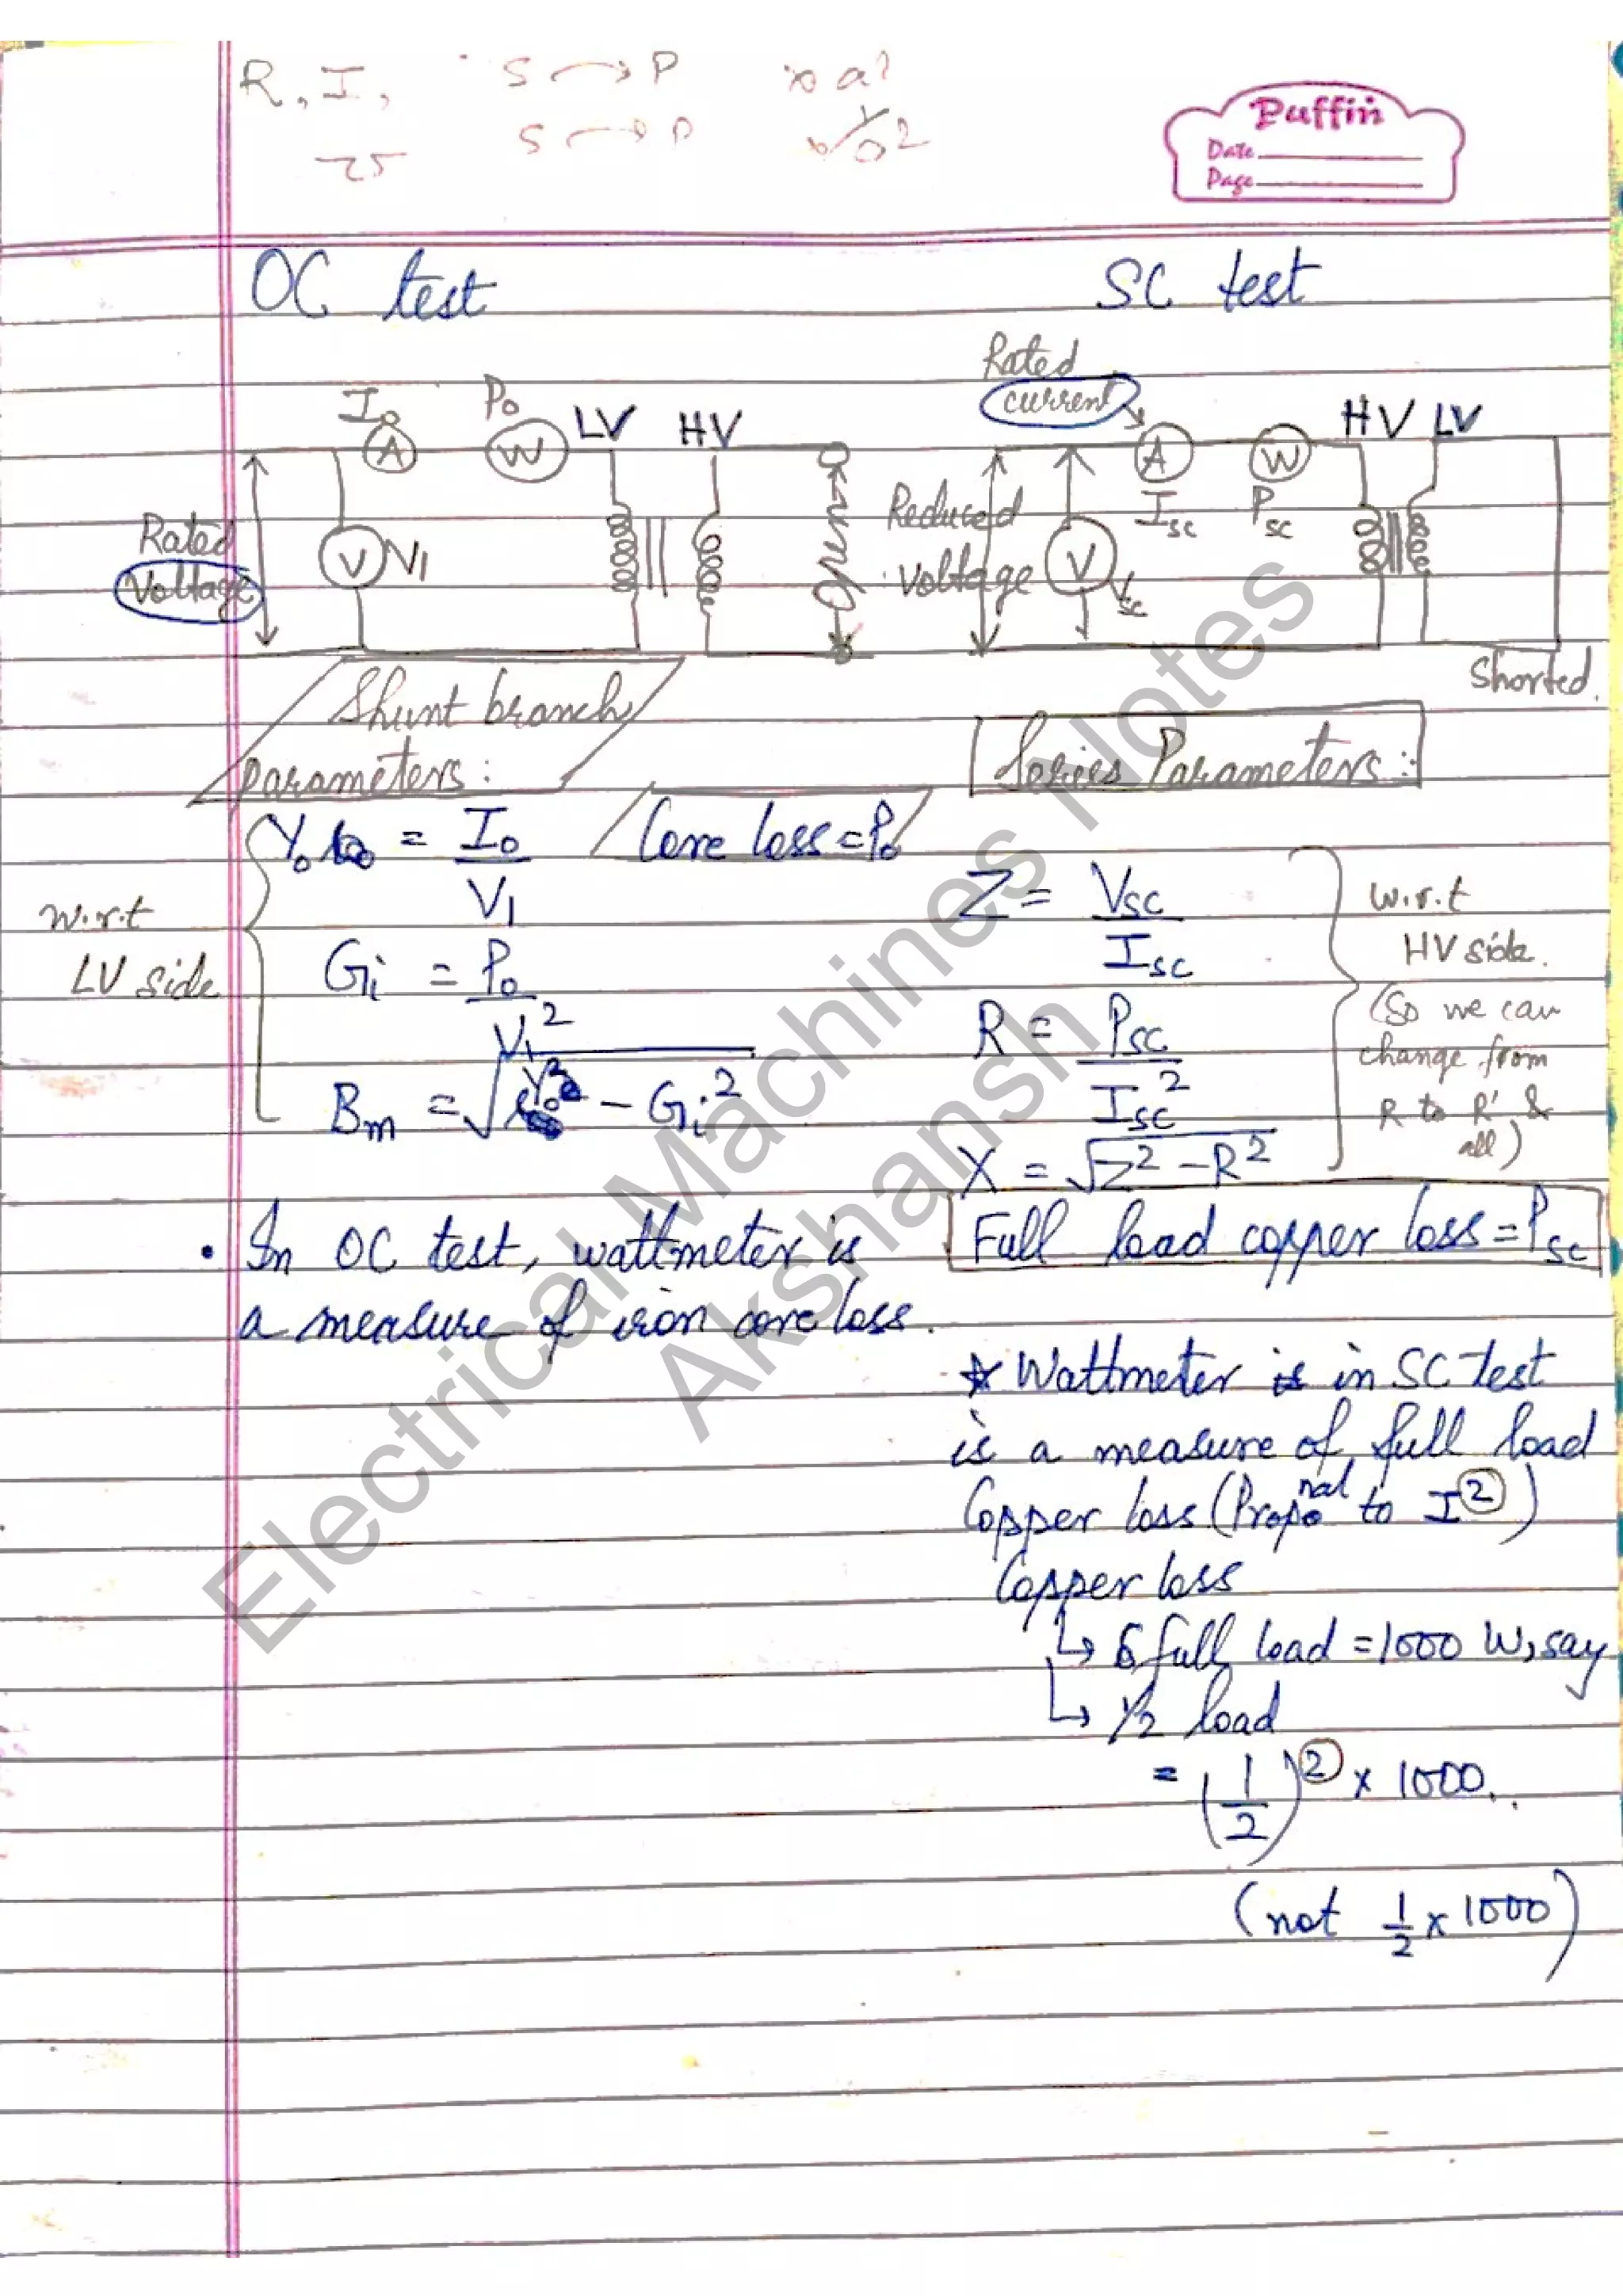 R, I, S → P
S → P
Puffin
Date
Page
OC test
SC test
I₀
P₀
A
W
LV
HV
Rated
Voltage
V
V₁
Open
Rated
current
A
W
HV
LV
Reduced
voltage
I_sc
P_sc
V
V_sc
Shorted.
Shunt branch
parameters:
Core loss = P₀
w.r.t
LV side
Y₀ = I₀ / V₁
G_i = P₀ / V₁²
B_m = √(Y₀² - G_i²)
Series Parameters:-
Z = V_sc / I_sc
R = P_sc / I_sc²
X = √(Z² - R²)
w.r.t
HV side.
(So we can
change from
R to R' &
all)
Full load copper loss = P_sc
• In OC test, wattmeter is
a measure of iron core loss.
☆ Wattmeter in SC test
is a measure of full load
Copper loss (Propo^nal to I²)
Copper loss
↳ full load = 1000 W, say
↳ 1/2 load
= (1/2)² x 1000.
(not 1/2 x 1000)
Electrical Machines Notes
Akshansh